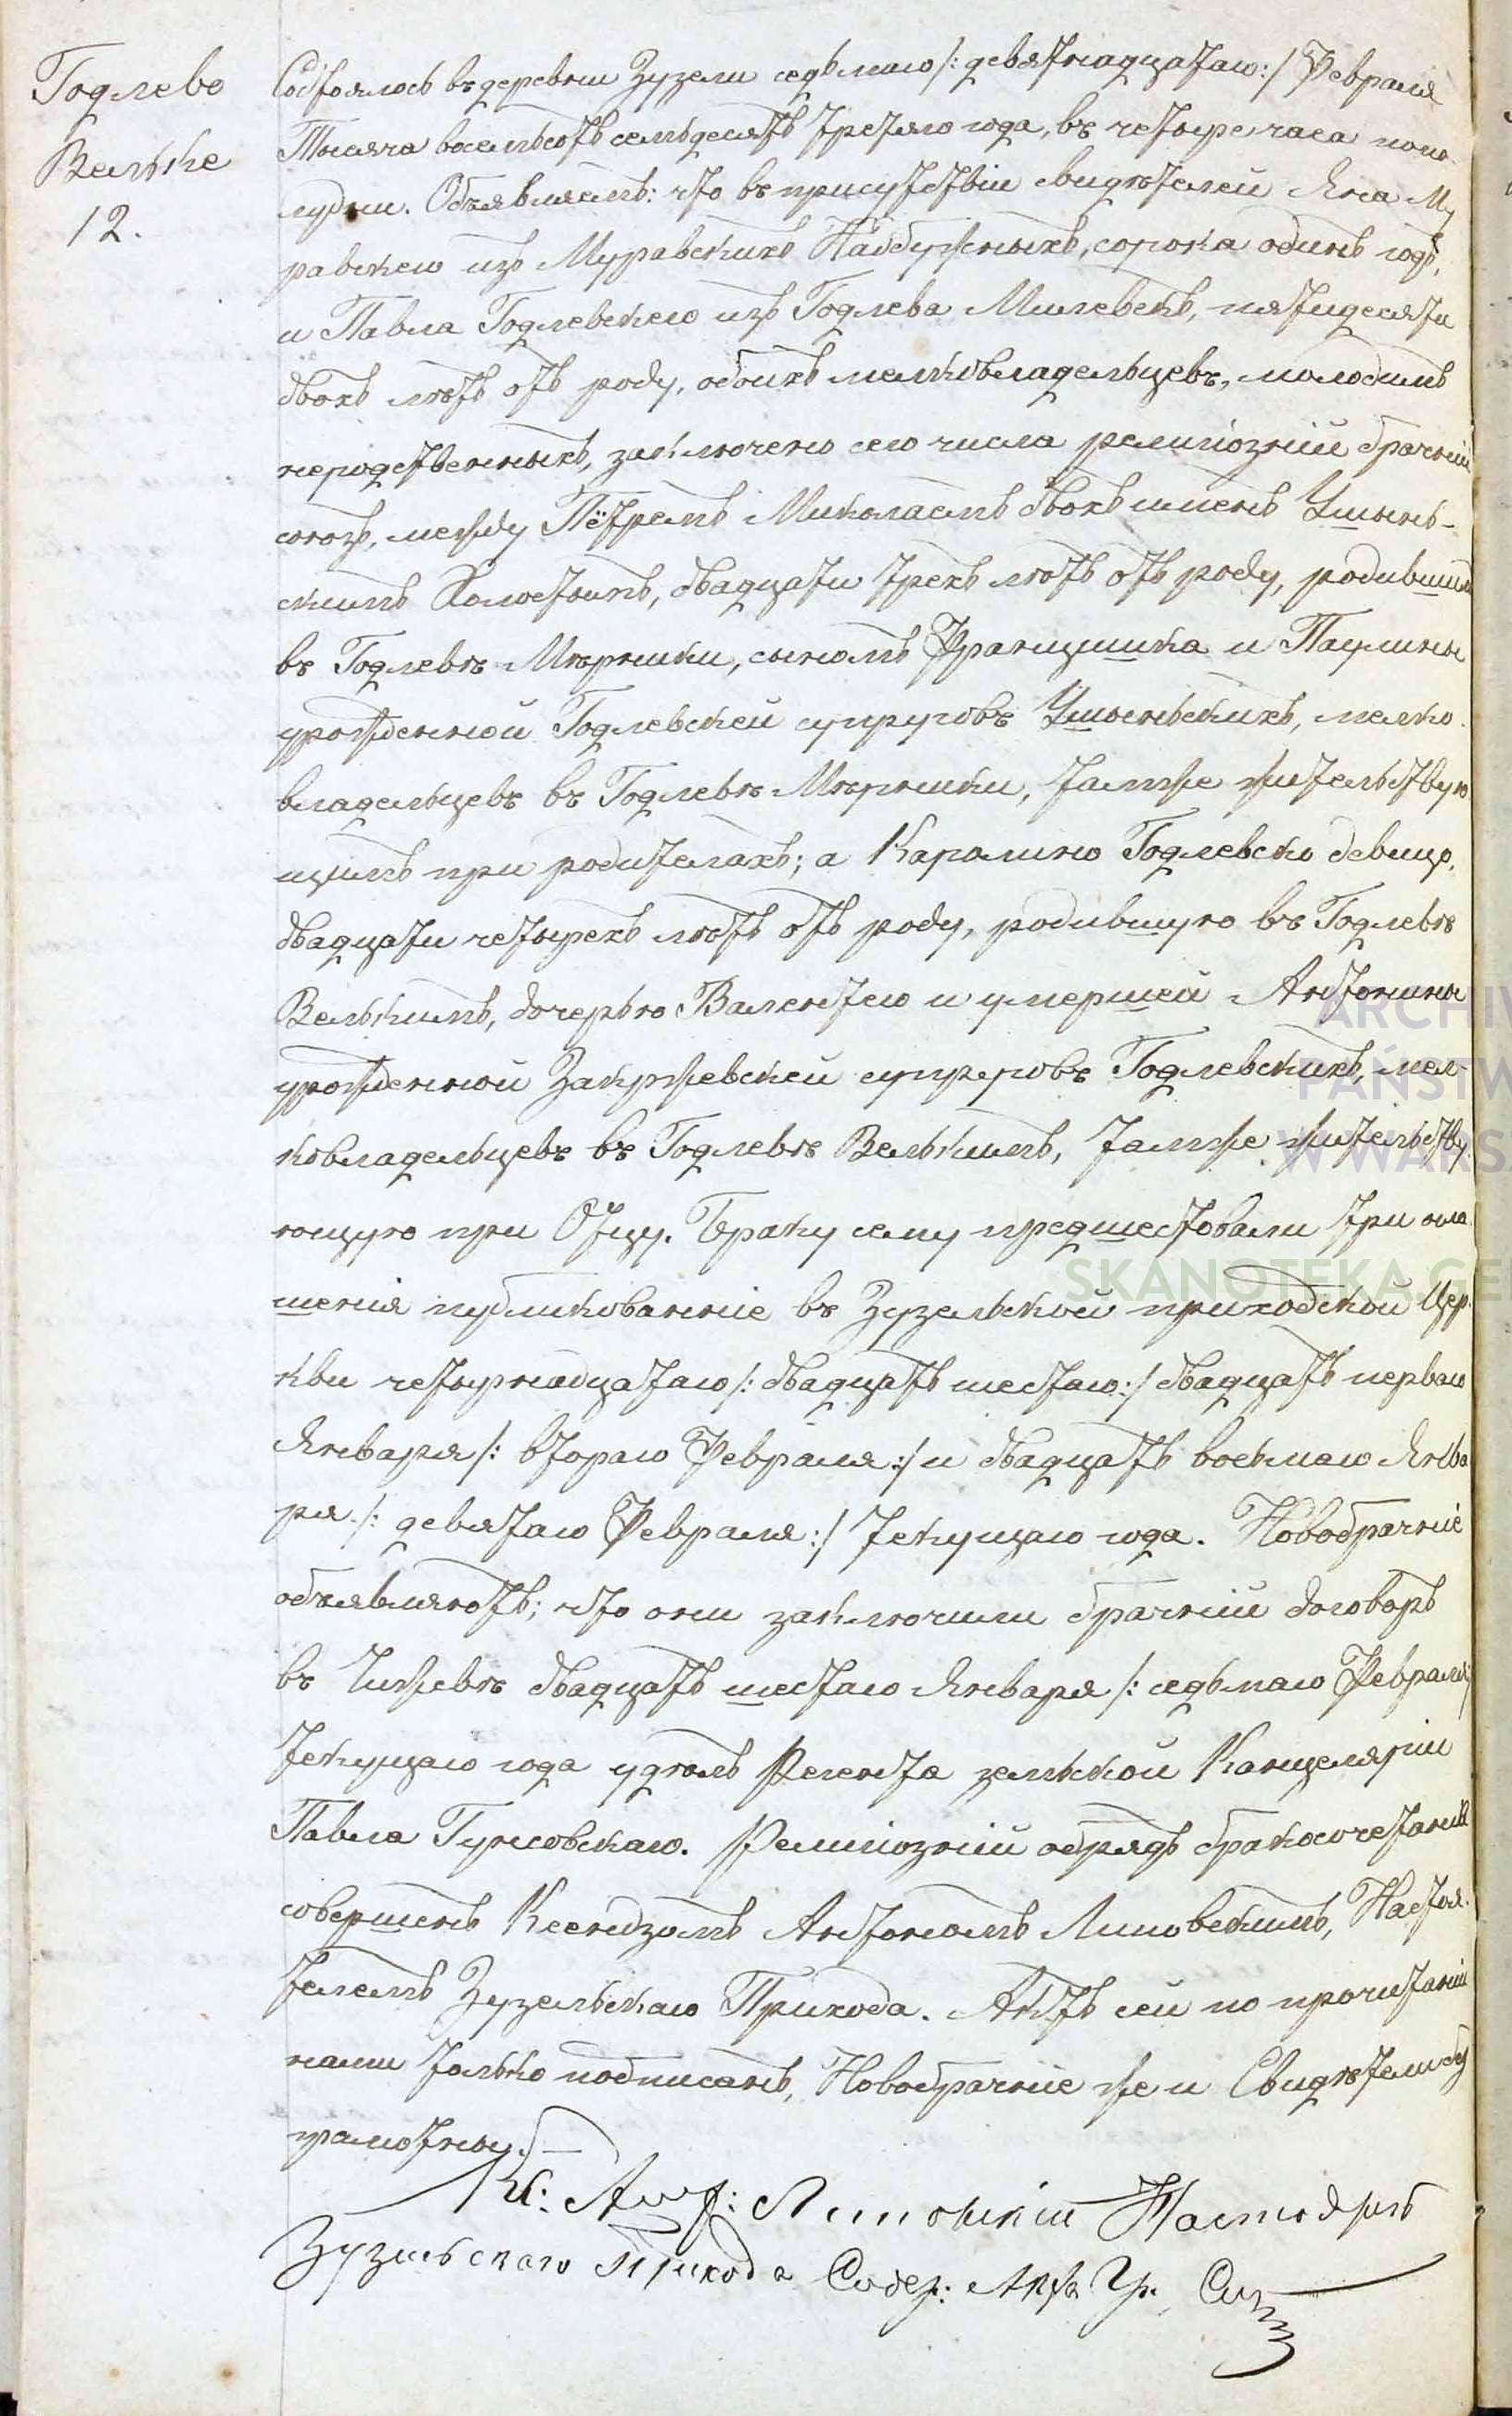 Годлево
Вельке
12.
Состоялось въ деревни Зузели седьмаго /: девятнадцатаго :/ Февраля
Тысяча восемьсотъ семьдесятъ третяго года, въ четыре часа попо-
лудни. Объявляемъ: что въ присутствіи свидѣтелей Яна Му
равскего изъ Муравскихъ Надбужныхъ, сорока одинъ годъ,
и Павла Годлевскего изъ Годлева Милевекъ, пятидесяти
двохъ лѣтъ отъ роду, обоихъ мелковладельцевъ, молодымъ
неродственныхъ, заключено сего числа религіозній брачній
союзъ, между Пётремъ Миколаемъ двохъ именъ Ушынь-
скимъ Холостымъ, двадцати трехъ лѣтъ отъ роду, родившимся
въ Годлевѣ Мѣрники, сыномъ Францишка и Паулины
урожденной Годлевскей супруговъ Ушыньскихъ, мелко-
владельцевъ въ Годлевѣ Мѣрники, тамже жительствую
щимъ при родителахъ; а Каролиню Годлевско девицо,
двадцати четырехъ лѣтъ отъ роду, родившую въ Годлевѣ
Велькимъ, дочерью Валентего и умершей Антонины
урожденной Закржевскей супруговъ Годлевскихъ, мел-
ковладельцевъ въ Годлевѣ Велькимъ, тамже жительству
ющую при Отцу. Браку сему предшестовали три огла-
шенія публикованніе въ Зузельской приходской Цер-
кви четырнадцатаго /: двадцать шестаго :/ двадцать перваго
Января /: втораго Февраля :/ и двадцать восьмаго Янва
ря /: девятаго Февраля :/ текущаго года. Новобрачніе
объявляютъ; что они заключили брачній договоръ
въ Чижевѣ двадцать шестаго Января /: седьмаго Февраля :/
текущаго года у дѣлъ Регента земьской Канцеляріи
Павла Гумовскаго. Религіозній обрядъ бракосочетанія
совершенъ Ксендзомъ Антономъ Липовскимъ, Настоя-
телемъ Зузельскаго Прихода. Актъ сей по прочитаніи
нами только подписанъ, Новобрачніе же и Свидѣтели не
грамотны.
Кс: Ант: Липовскій Настоятель
Зузельскаго Прихода Содер: Акта Гр. Сост
ARCHIW
PAŃSTW
W WARSZA
SKANOTEKA.GE